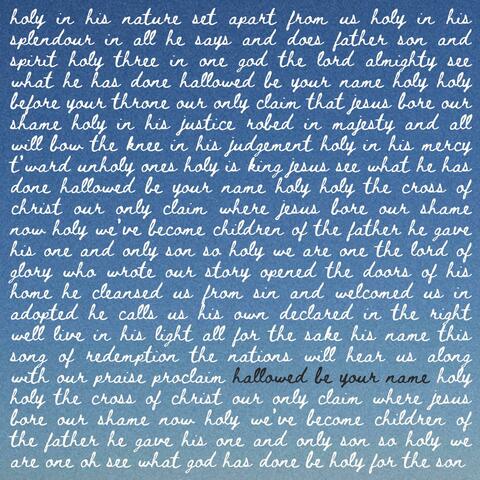 holy in his nature set apart from us holy in his
splendour in all he says and does father son and
spirit holy three in one god the lord almighty see
what he has done hallowed be your name holy holy
before your throne our only claim that jesus bore our
shame holy in his justice robed in majesty and all
will bow the knee in his judgement holy in his mercy
t'ward unholy ones holy is king jesus see what he has
done hallowed be your name holy holy the cross of
christ our only claim where jesus bore our shame
now holy we've become children of the father he gave
his one and only son so holy we are one the lord of
glory who wrote our story opened the doors of his
home he cleansed us from sin and welcomed us in
adopted he calls us his own declared in the right
well live in his light all for the sake his name this
song of redemption the nations will hear us along
with our praise proclaim hallowed be your name holy
holy the cross of christ our only claim where jesus
bore our shame now holy we've become children of
the father he gave his one and only son so holy we
are one oh see what god has done be holy for the son